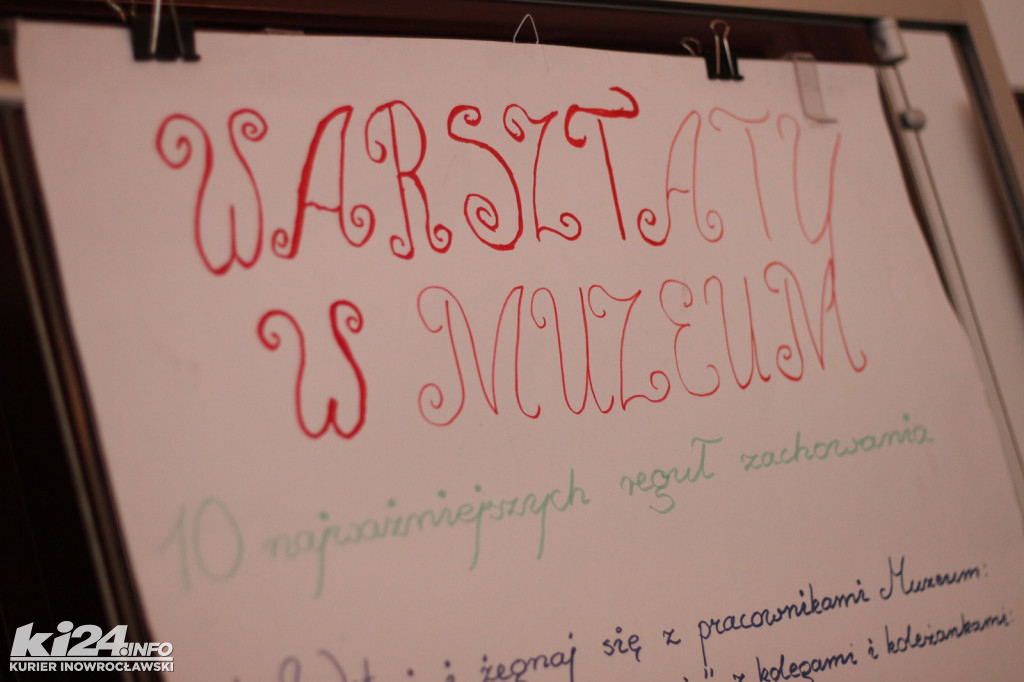 WARSZTATY
W MUZEUM
10 najważniejszych reguł zachowania
i żegnaj się z pracownikami Muzeum:
z kolegami i koleżankami:
ki24.INFO
KURIER INOWROCŁAWSKI